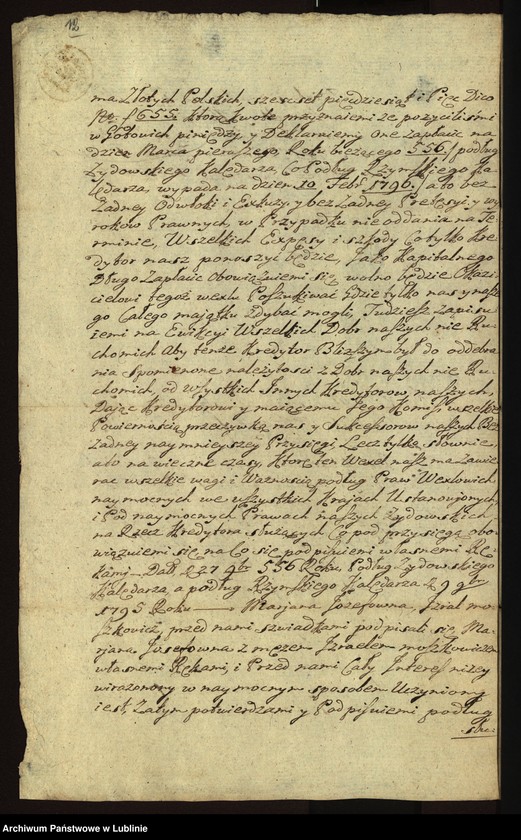 12
ma Złotych Polskich, szescset pięcdziesiąt i Pięc Dico
Nro f 655, ktora kwote przyznaiemi ze pozyczilismi
w Gotowich piniędzy, y Deklaruiemy One zapłacic na
dzien Marca pierwszego, Roku biezącego 556 / podług
Zydowskiego Kalędarza, Co Podług Rzymskiego Ka-
lędarza, wypada na dzien 10 Febr 1796. / a to bez
Zadney Odwłoki i Exkuzy y bez Zadney Pretensyi y wy
rokow Prawnych, w Przypadku nie oddania na Ter-
minie, Wszelkich Expensy i szkody Co tylko Kre-
dytor nasz ponosyi będzie, Jako Kapitalnego
Długo Zapłacic Obowiązuiemi się, wolno będzie Okazi
cielowi tegoz wexlu Poszukiwac gdzie tylko nas y nasze
go Całego maiątku zdybac mogli, Tudziesz Zapisu
iemi na Ewikcyi Wszelkich Dobr naszych nie Ru-
chomich Aby tenze Kredytor Blizszym był do oddebra
nia spomnione nalezytosci z Dobr naszych nie Ru-
chomich, od wszystkich Innych Kredytorow, naszych,
Dając Kredytorowi y maiącemu Jego Komis wszelkie
Powiernosią przeciwko nas y sukcessorow naszych Bez
Zadney naymnieyszey Przysięgi, Lecz tylko słownie
abo na wieczne czasy, Ktore ten Wexel nasz ma Zawie
rac wszelkie wagi i Waznosci podług Praw Wexlowich
naymocnych we wszystkich Krajach Ustanowionych
i Pod naymocnych Prawach naszych Zydowskich
na Rzecz Kredytora słuzących Co pod przysięgą obo
wiązuiemi się, na Co się podpisuiemi własnemi Rę-
kami — Datt 27 9br 556 Roku. Podług Zydowskiego
Kalędarza, a podług Rzymskiego Kalędarza 9 9br
1795 Roku — Marjana Jozefowna, Izral mo
szkowicz, przed nami szwiadkami podpisali się, Ma-
rjana Jusefowna z męzem Izraelem moszkowiczem
własnemi Rękami, i Przed nami Cały Interes nizey
wirazonory w naymocnym sposobem Uczyniony
iest, Zatym potwierdzami y Podpisuiemi podług
stu-
Archiwum Państwowe w Lublinie